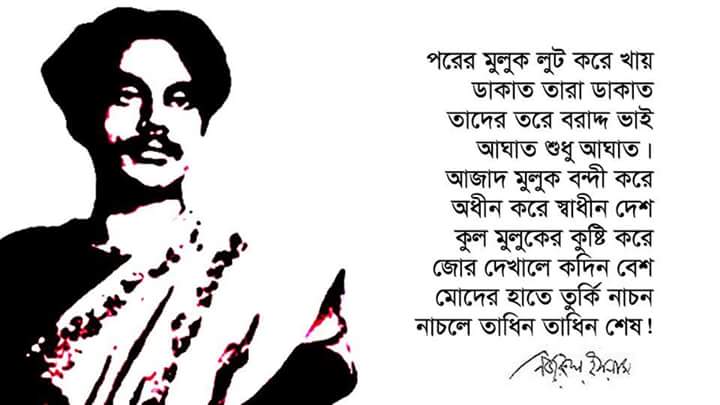 পরের মুলুক লুট করে খায়
ডাকাত তারা ডাকাত
তাদের তরে বরাদ্দ ভাই
আঘাত শুধু আঘাত।
আজাদ মুলুক বন্দী করে
অধীন করে স্বাধীন দেশ
কুল মুলুকের কুষ্টি করে
জোর দেখালে কদিন বেশ
মোদের হাতে তুর্কি নাচন
নাচলে তাধিন তাধিন শেষ!
নজরুল ইসলাম